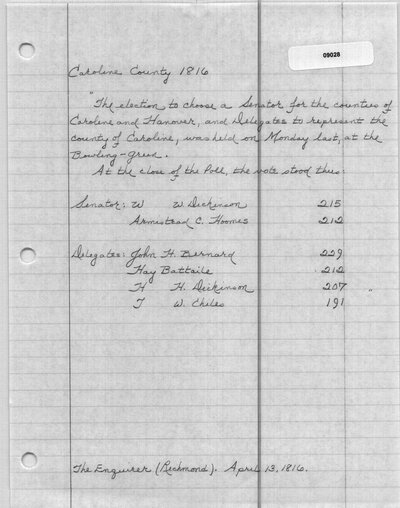 09028
Caroline County 1816
"The election to choose a Senator for the counties of
Caroline and Hanover, and Delegates to represent the
county of Caroline, was held on Monday last, at the
Bowling-Green.
At the close of the Poll, the vote stood thus:
Senator: W W. Dickinson 215
Armistead C. Hoomes 212
Delegates: John H. Bernard 229
Hay Battaile 212
H H. Dickinson 207
T W. Chiles 191 "
The Enquirer (Richmond). April 13, 1816.